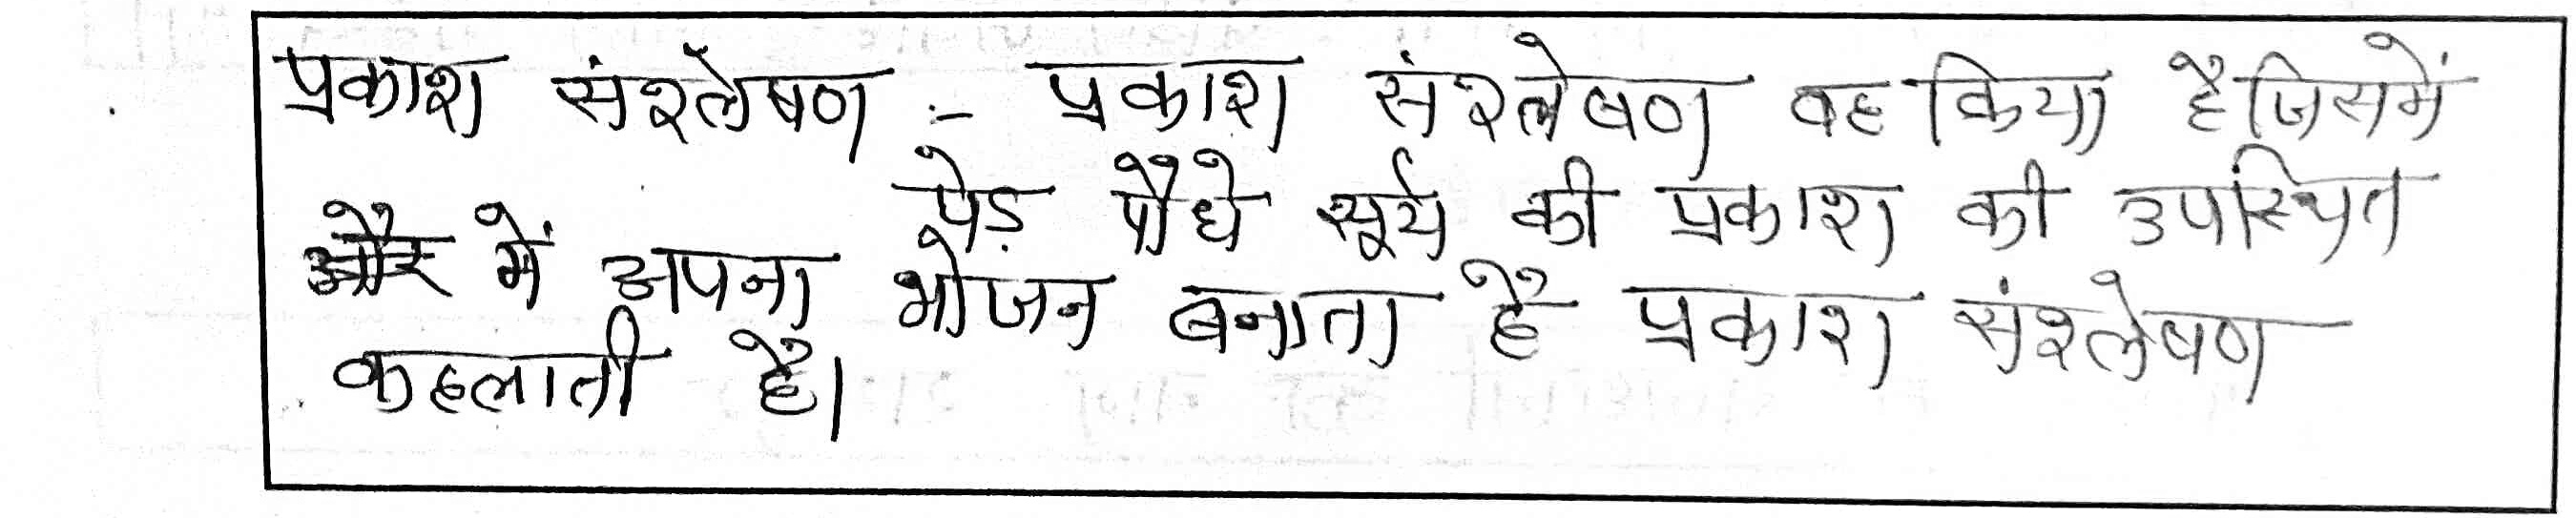 प्रकाश संश्लेषण :- प्रकाश संश्लेषण वह किया है जिसमें
पेड़ पौधे सूर्य की प्रकाश की उपस्थित
में अपना भोजन बनाता है प्रकाश संश्लेषण
कहलाती है।